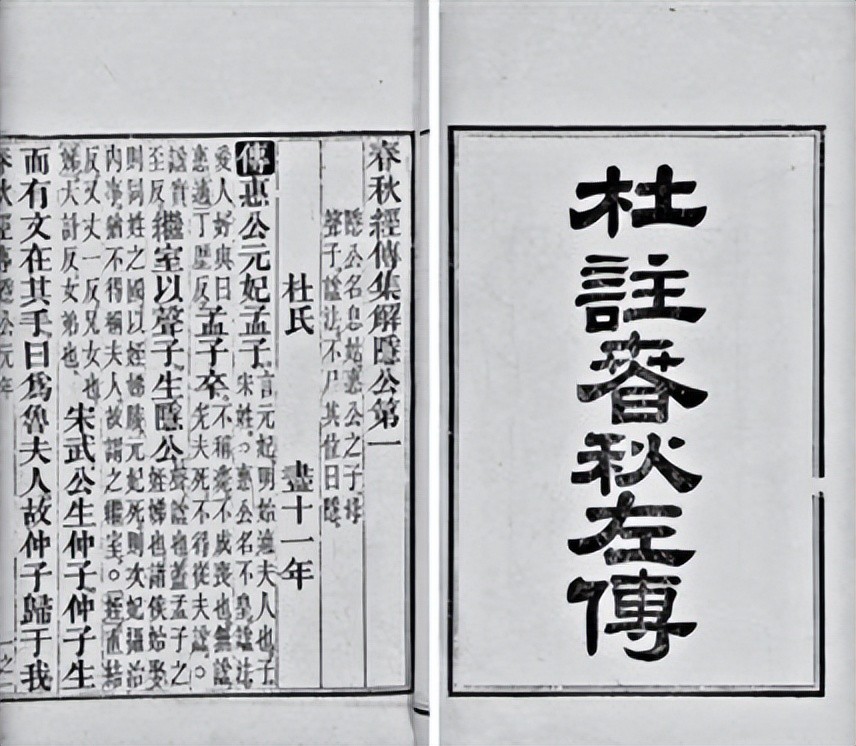 杜註春秋左傳
春秋經傳集解隱公第一
隱公名息姑惠公之子母
聲子謚法不尸其位曰隱
杜氏 盡十一年
傳惠公元妃孟子言元妃明始適夫人也子宋姓○惠公名不皇謚法
愛人好與曰惠適丁歷反孟子卒不稱薨不成喪也無謚先夫死不得從夫謚○
謚實至反繼室以聲子生隱公聲謚也蓋孟子之姪娣也諸侯始娶
則同姓之國以姪娣媵元妃死則次妃攝治
內事猶不得稱夫人故謂之繼室○姪直結
反又丈一反兄女也娣大計反女弟也宋武公生仲子仲子生
而有文在其手曰爲魯夫人故仲子歸于我